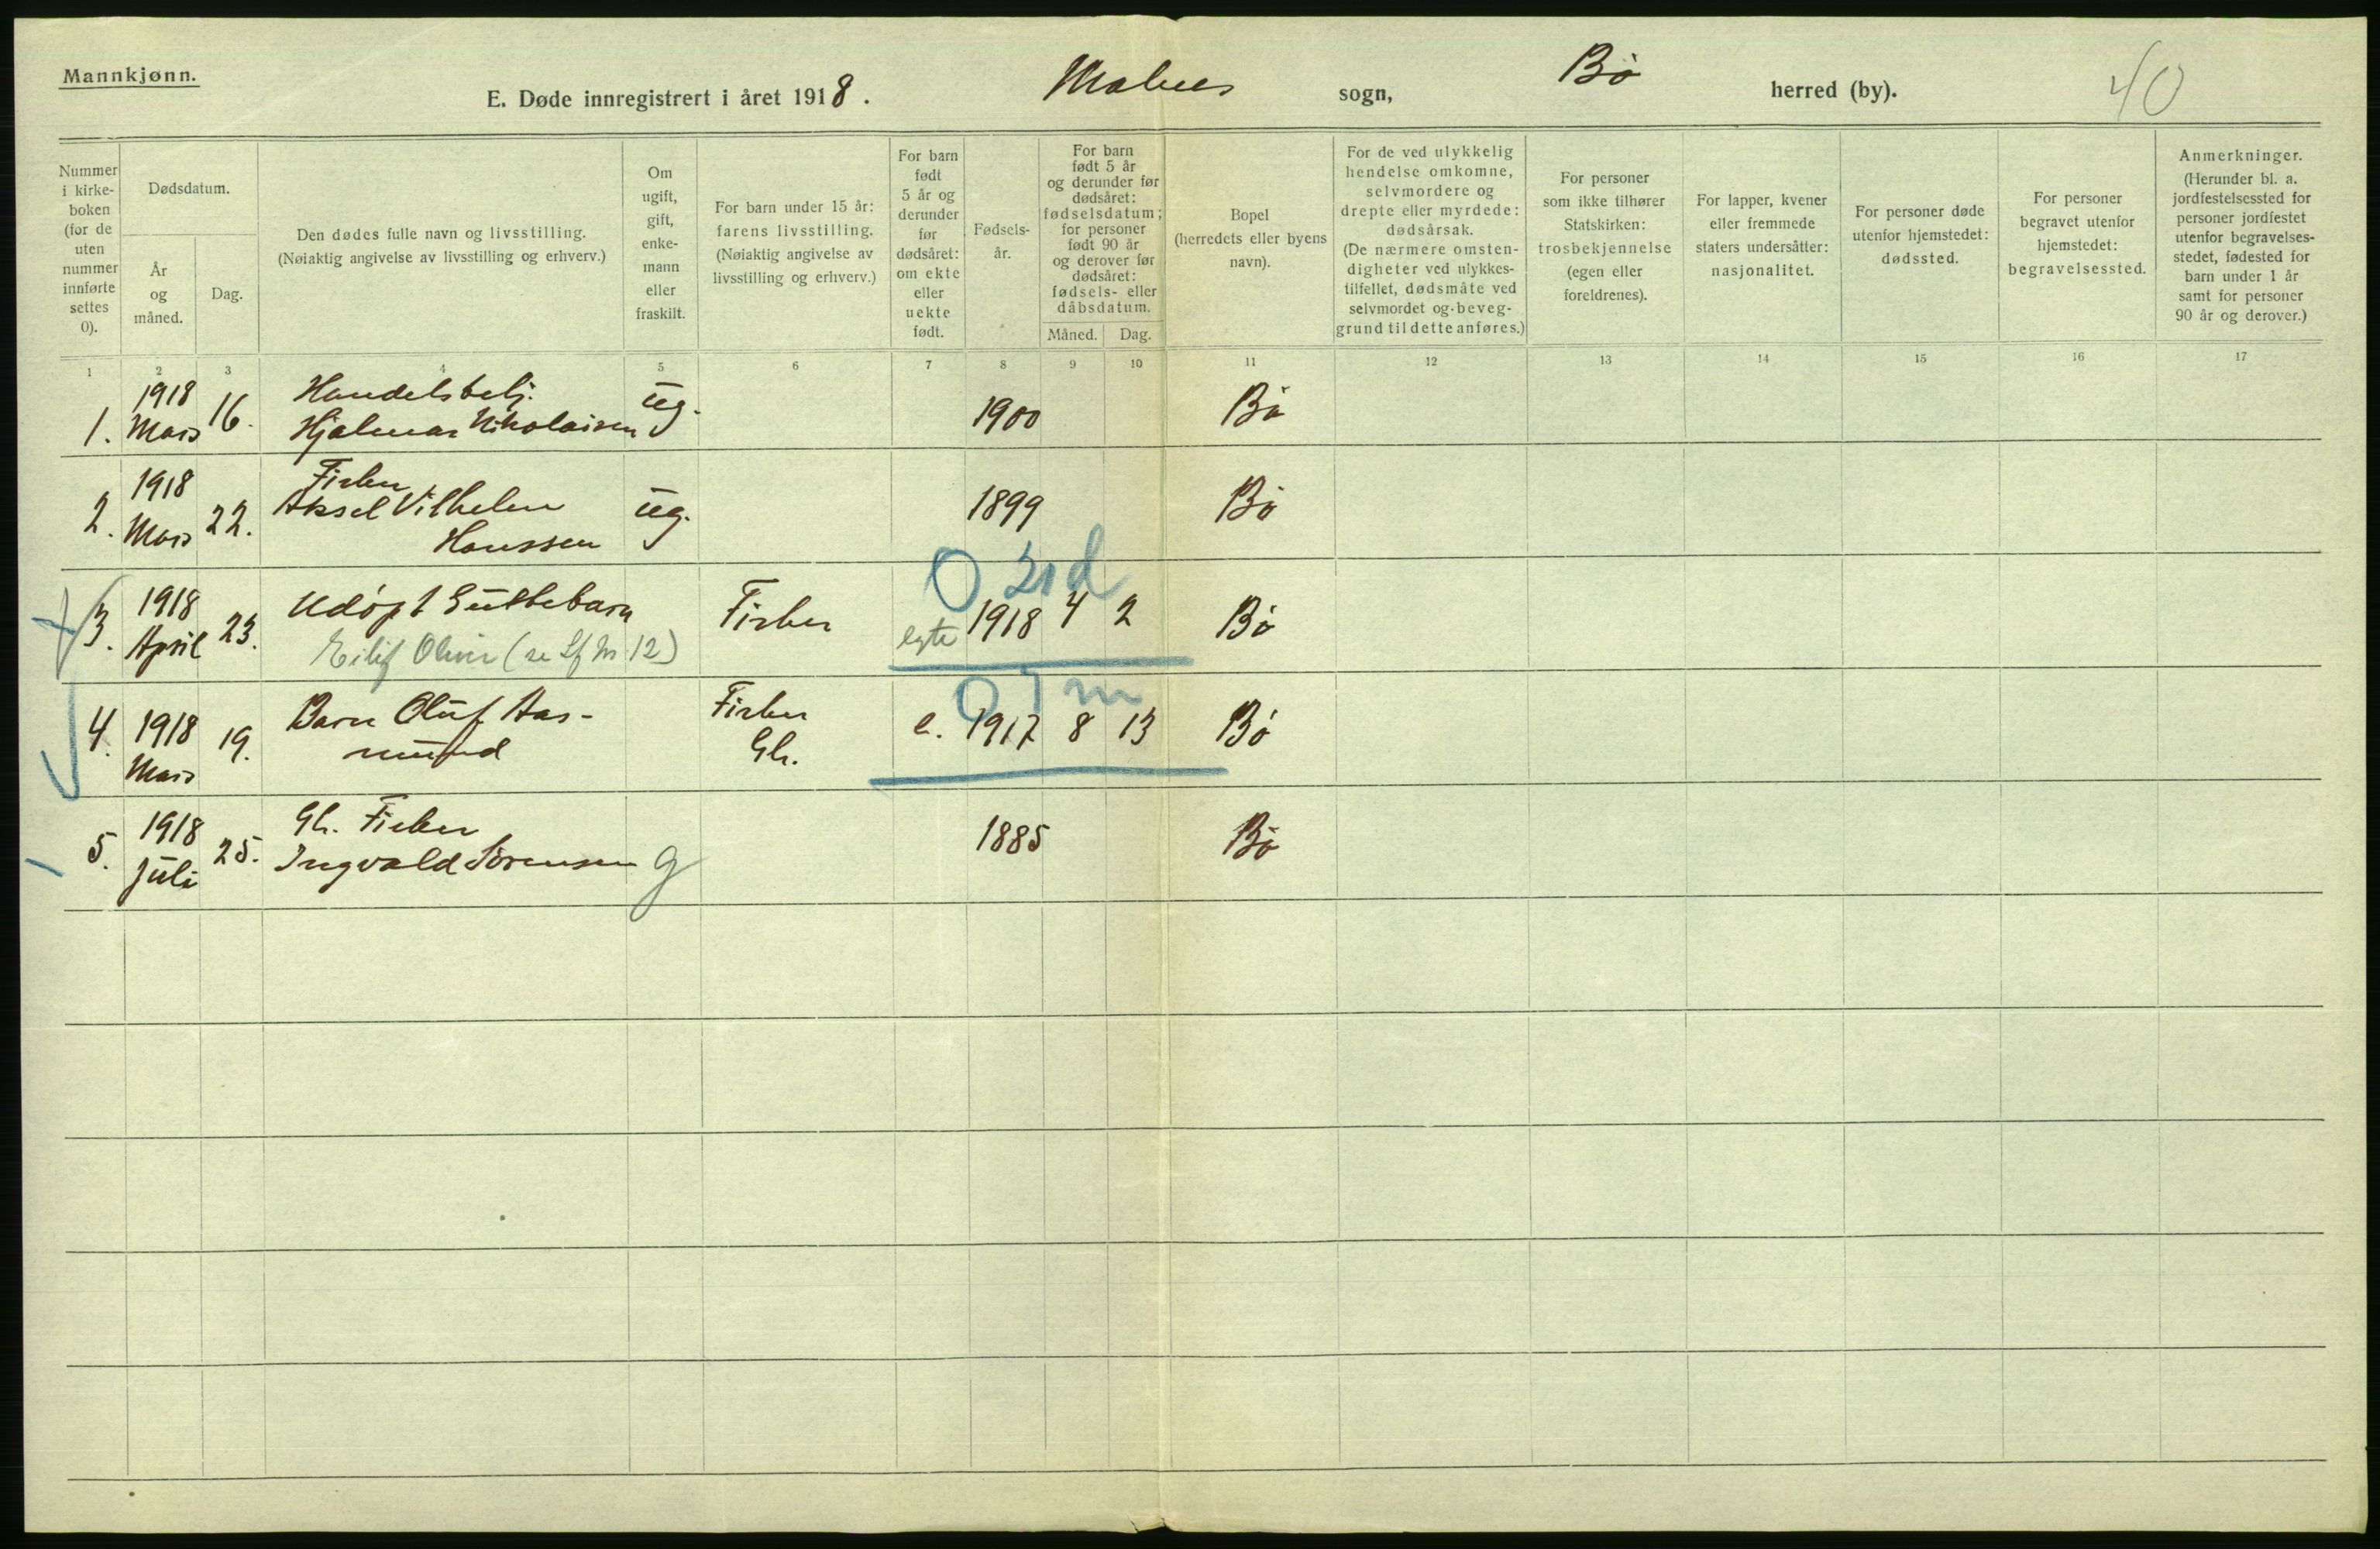 Mannkjønn.
E. Døde innregistrert i året 1918. Malnes sogn, Bø herred (by). 40
Nummer i kirke-boken (for de uten nummer innførte settes 0).
Dødsdatum.
År og måned.
Dag.
Den dødes fulle navn og livsstilling.
(Nøiaktig angivelse av livsstilling og erhverv.)
Om ugift, gift, enke-mann eller fraskilt.
For barn under 15 år: farens livsstilling.
(Nøiaktig angivelse av livsstilling og erhverv.)
For barn født 5 år og derunder før dødsåret: om ekte eller uekte født.
Fødsels-år.
For barn født 5 år og derunder før dødsåret: fødselsdatum; for personer født 90 år og derover før dødsåret: fødsels- eller dåbsdatum.
Måned.
Dag.
Bopel (herredets eller byens navn).
For de ved ulykkelig hendelse omkomne, selvmordere og drepte eller myrdede: dødsårsak.
(De nærmere omsten-digheter ved ulykkes-tilfellet, dødsmåte ved selvmordet og beveg-grund til dette anføres.)
For personer som ikke tilhører Statskirken: trosbekjennelse (egen eller foreldrenes).
For lapper, kvener eller fremmede staters undersåtter: nasjonalitet.
For personer døde utenfor hjemstedet: dødssted.
For personer begravet utenfor hjemstedet: begravelsessted.
Anmerkninger.
(Herunder bl. a. jordfestelsessted for personer jordfestet utenfor begravelses-stedet, fødested for barn under 1 år samt for personer 90 år og derover.)
1 2 3 4 5 6 7 8 9 10 11 12 13 14 15 16 17
1. 1918 Mars 16. Handelsbetj. Hjalmar Nikolaisen ug. 1900 Bø
2. 1918 Mars 22. Fisker Aksel Vilhelm Hanssen ug. 1899 Bø
0 21 d
3. 1918 April 23. Udøpt Guttebarn Fisker egte 1918 4 2 Bø
Eilif Oliver (se Lf nr 12)
0 7 m
4. 1918 Mars 19. Barn Oluf Aas-mund Fisker Gb. e. 1917 8 13 Bø
5. 1918 Juli 25. Gb. Fisker Ingvald Sørensen g 1885 Bø